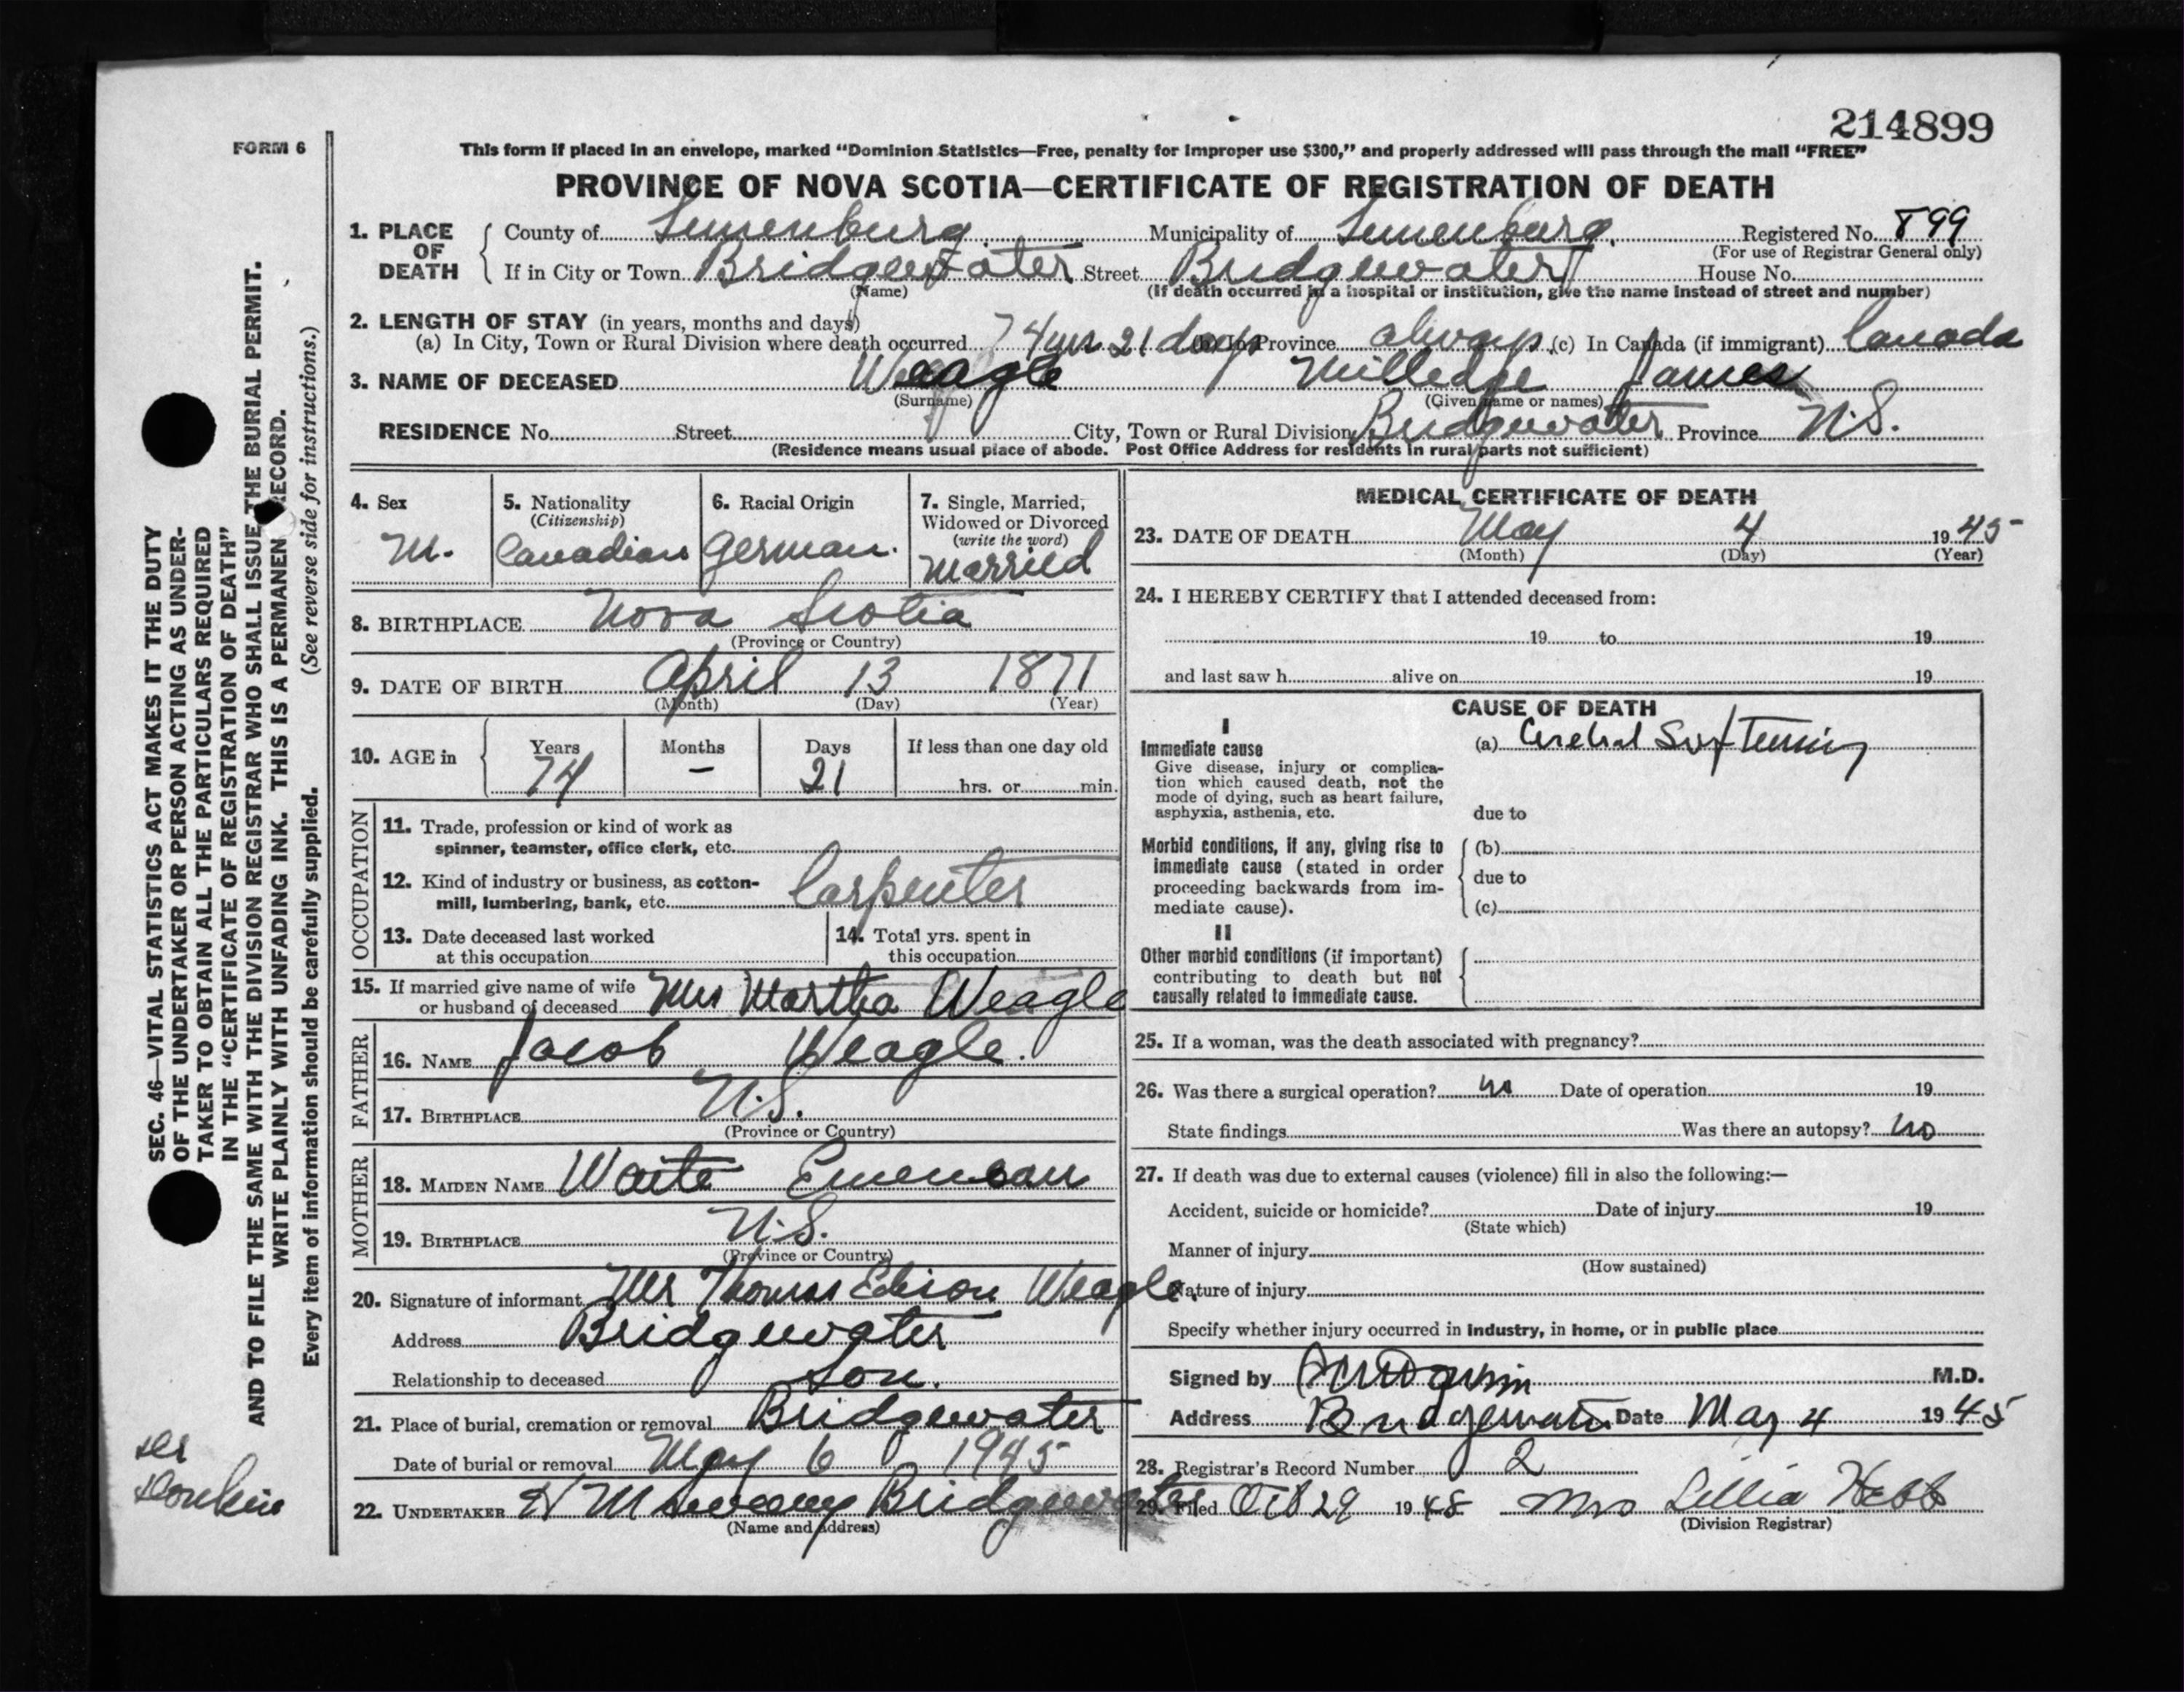 214899
FORM 6
This form if placed in an envelope, marked “Dominion Statistics—Free, penalty for improper use $300,” and properly addressed will pass through the mail “FREE”
PROVINCE OF NOVA SCOTIA—CERTIFICATE OF REGISTRATION OF DEATH
1. PLACE OF DEATH
County of Lunenburg Municipality of Lunenburg. Registered No. 899
(For use of Registrar General only)
If in City or Town Bridgewater Street Bridgewater House No.
(Name) (If death occurred in a hospital or institution, give the name instead of street and number)
2. LENGTH OF STAY (in years, months and days)
(a) In City, Town or Rural Division where death occurred 74 yrs 21 days Province always (c) In Canada (if immigrant) Canada
3. NAME OF DECEASED Weagle Milledge James
(Surname) (Given name or names)
RESIDENCE No. Street City, Town or Rural Division Bridgewater Province N.S.
(Residence means usual place of abode. Post Office Address for residents in rural parts not sufficient)
4. Sex
M.
5. Nationality
(Citizenship)
Canadian
6. Racial Origin
German.
7. Single, Married,
Widowed or Divorced
(write the word)
Married
8. BIRTHPLACE Nova Scotia
(Province or Country)
9. DATE OF BIRTH April 13 1871
(Month) (Day) (Year)
10. AGE in Years Months Days If less than one day old
74 – 21 hrs. or min.
OCCUPATION
11. Trade, profession or kind of work as
spinner, teamster, office clerk, etc.
12. Kind of industry or business, as cotton-
mill, lumbering, bank, etc. Carpenter
13. Date deceased last worked
at this occupation
14. Total yrs. spent in
this occupation
15. If married give name of wife
or husband of deceased Mrs Martha Weagle
FATHER
16. NAME Jacob Weagle.
17. BIRTHPLACE N.S.
(Province or Country)
MOTHER
18. MAIDEN NAME Waite Emeneau
19. BIRTHPLACE N.S.
(Province or Country)
20. Signature of informant Mr Thomas Edison Weagle.
Address Bridgewater
Relationship to deceased Son.
21. Place of burial, cremation or removal Bridgewater
Date of burial or removal May 6 1945
22. UNDERTAKER H M Sweeny Bridgewater
(Name and address)
MEDICAL CERTIFICATE OF DEATH
23. DATE OF DEATH May 4 1945
(Month) (Day) (Year)
24. I HEREBY CERTIFY that I attended deceased from:
19 to 19
and last saw h alive on 19
CAUSE OF DEATH
I
Immediate cause (a) Cerebral Softening
Give disease, injury or complica-
tion which caused death, not the
mode of dying, such as heart failure,
asphyxia, asthenia, etc. due to
Morbid conditions, if any, giving rise to (b)
immediate cause (stated in order
proceeding backwards from im- due to
mediate cause). (c)
II
Other morbid conditions (if important)
contributing to death but not
causally related to immediate cause.
25. If a woman, was the death associated with pregnancy?
26. Was there a surgical operation? no Date of operation 19
State findings Was there an autopsy? no
27. If death was due to external causes (violence) fill in also the following:—
Accident, suicide or homicide? Date of injury 19
(State which)
Manner of injury
(How sustained)
Nature of injury
Specify whether injury occurred in industry, in home, or in public place
Signed by M.D.
Address Bridgewater Date May 4 1945
28. Registrar's Record Number 2
29. Filed Oct 29 1948 Mrs Lillia Hebb
(Division Registrar)
SEC. 46—VITAL STATISTICS ACT MAKES IT THE DUTY
OF THE UNDERTAKER OR PERSON ACTING AS UNDER-
TAKER TO OBTAIN ALL THE PARTICULARS REQUIRED
IN THE “CERTIFICATE OF REGISTRATION OF DEATH”
AND TO FILE THE SAME WITH THE DIVISION REGISTRAR WHO SHALL ISSUE THE BURIAL PERMIT.
WRITE PLAINLY WITH UNFADING INK. THIS IS A PERMANENT RECORD.
Every item of information should be carefully supplied. (See reverse side for instructions.)